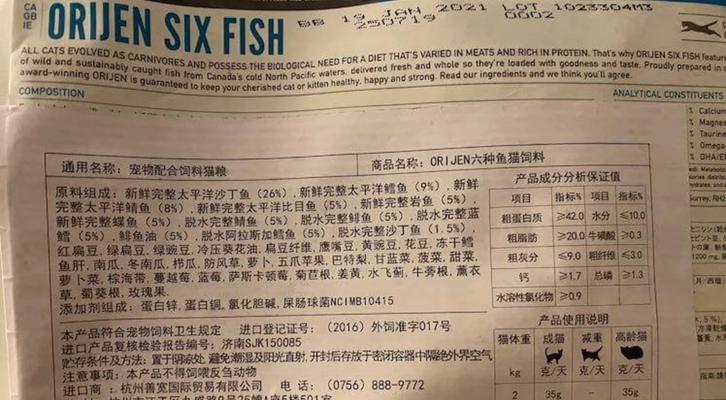 CA
GB
IE
ORIJEN SIX FISH
BB 19 JAN 2021 LOT 1023304M3
250719 0002
ALL CATS EVOLVED AS CARNIVORES AND POSSESS THE BIOLOGICAL NEED FOR A DIET THAT'S VARIED IN MEATS AND RICH IN PROTEIN. That's why ORIJEN SIX FISH feature
of wild and sustainably caught fish from Canada's cold North Pacific waters, delivered fresh and whole so they're loaded with goodness and taste. Proudly prepared in
award-winning ORIJEN is guaranteed to keep your cherished cat or kitten healthy, happy and strong. Read our ingredients and we think you'll agree.
COMPOSITION
ANALYTICAL CONSTITUENTS
% Calcium
% Magnes
% Taurine
% Omega
% DHA/E
通用名称：宠物配合饲料猫粮 商品名称：ORIJEN六种鱼猫饲料
原料组成：新鲜完整太平洋沙丁鱼（26%），新鲜完整太平洋鳕鱼（9%），新鲜
完整太平洋鲭鱼（8%），新鲜完整太平洋比目鱼（5%），新鲜完整岩鱼（5%），
新鲜完整鲽鱼（5%），脱水完整鲭鱼（5%），脱水完整鲱鱼（5%），脱水完整蓝
鳕（5%），鲱鱼油（5%），脱水阿拉斯加鳕鱼（5%），脱水完整沙丁鱼（1.5%），
红扁豆，绿扁豆，绿豌豆，冷压葵花油，扁豆纤维，鹰嘴豆，黄豌豆，花豆，冻干鳕
鱼肝，南瓜，冬南瓜，栉瓜，防风草，萝卜，五爪苹果，巴特梨，甘蓝菜，菠菜，甜菜，
萝卜菜，棕海带，蔓越莓，蓝莓，萨斯卡顿莓，菊苣根，姜黄，水飞蓟，牛蒡根，薰衣
草，蜀葵根，玫瑰果，
添加剂组成：蛋白锌，蛋白铜，氯化胆碱，屎肠球菌NCIMB10415
产品成分分析保证值
项目 指标% 项目 指标%
粗蛋白质 ≥42.0 水分 ≤10.0
粗脂肪 ≥20.0 牛磺酸 ≥0.3
粗灰分 ≤9.0 粗纤维 ≤3.0
钙 ≥1.7 总磷 ≥1.3
水溶性氯化物 ≥0.9
本产品符合宠物饲料卫生规定 进口登记证号：（2016）外饲准字017号
进口产品复核检验报告编号：济南SJK150085
贮存条件及方法：置于阴凉处，避免潮湿及阳光直射，开封后存放于密闭容器中隔绝外界空气
注意事项：本产品不得饲喂反刍动物
进口商：杭州善宽国际贸易有限公司 电话：（0756）888-9772
产品使用说明
猫体重 成猫 减重 高龄猫
kg 克/天 克/天 克/天
2 35g - 35g